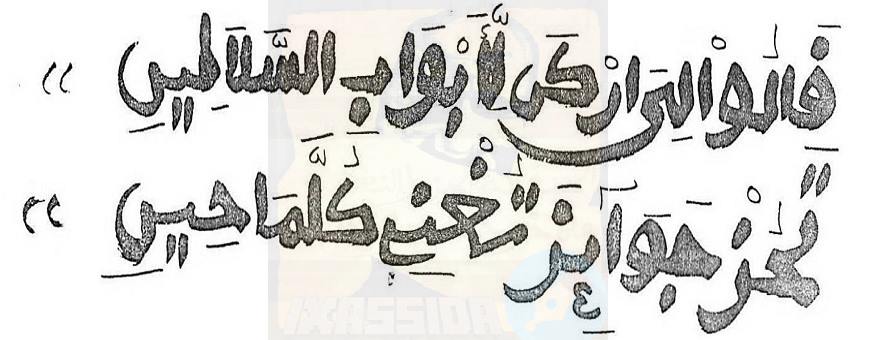 قَالُوا لِيَ ارْكَنْ لِّأَبْوَابِ السَّلَاطِينِ ،،
تَحُزْ جَوَائِزَ تُغْنِي كُلَّمَا حِينِ ،،
1XASSIDA